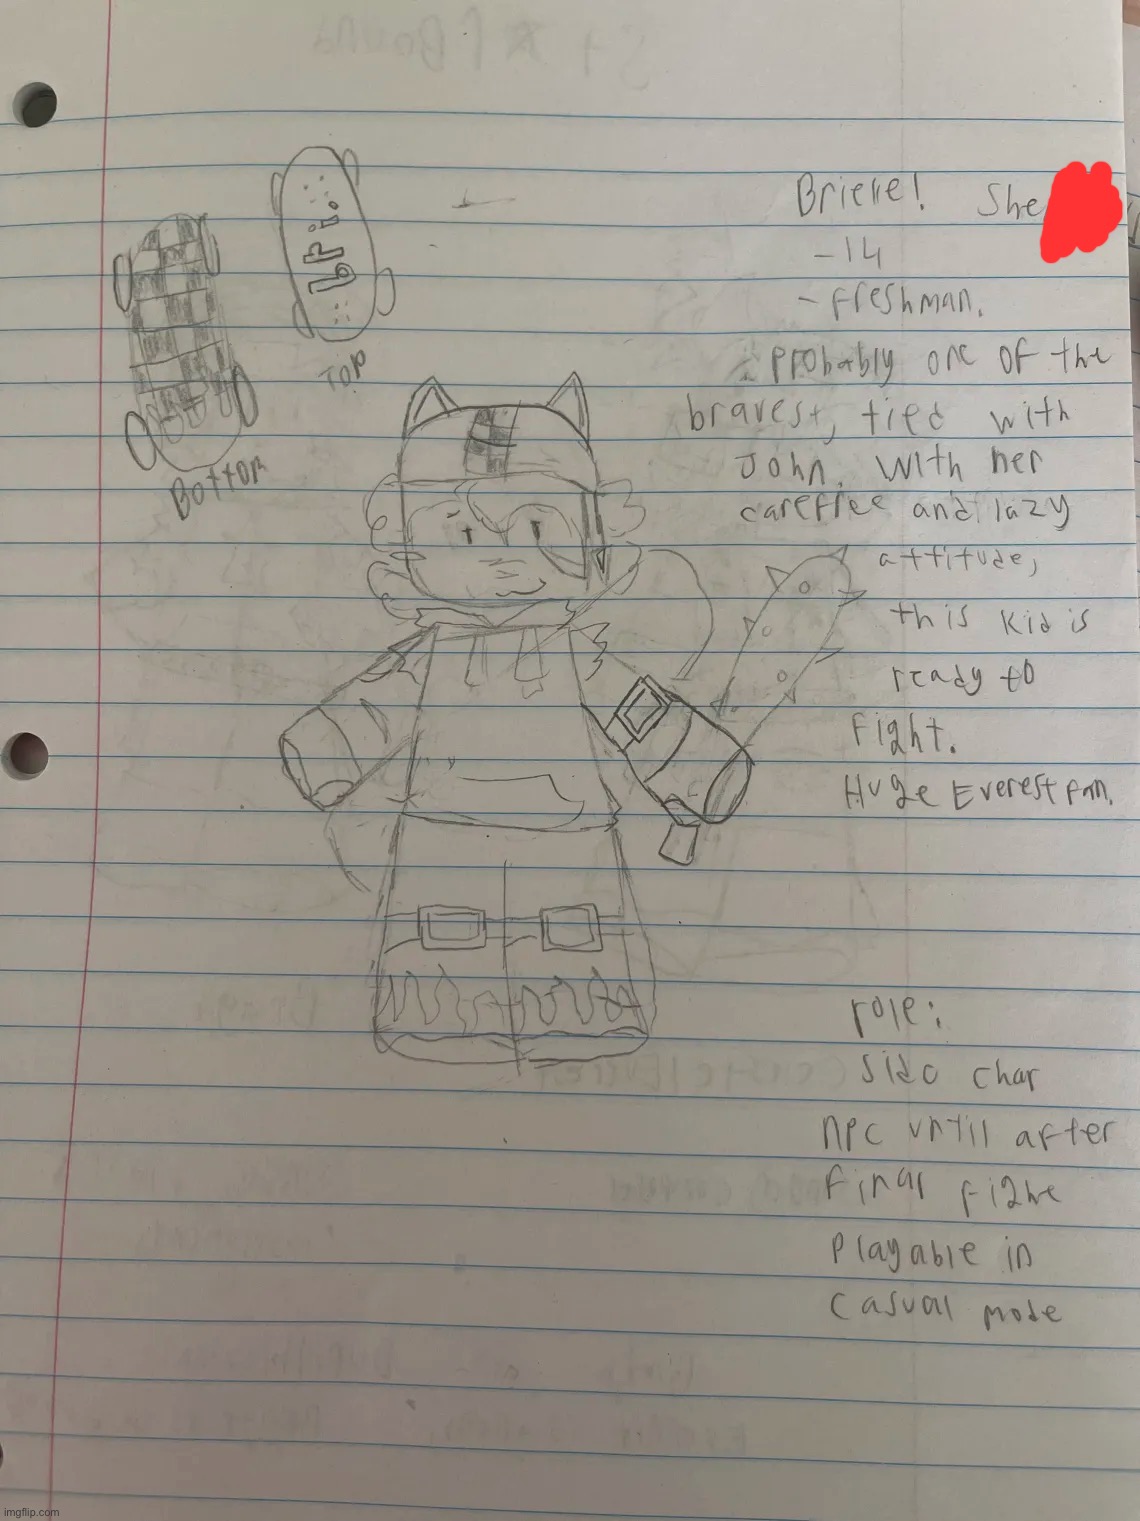 bri.
Top
Bottom
Brielle! She
- 14
- freshman.
- probably one of the
bravest, tied with
John. With her
carefree and lazy
attitude,
this kid is
ready to
fight.
Huge Everest fan.
role:
side char
npc until after
final fight
playable in
casual mode
imgflip.com